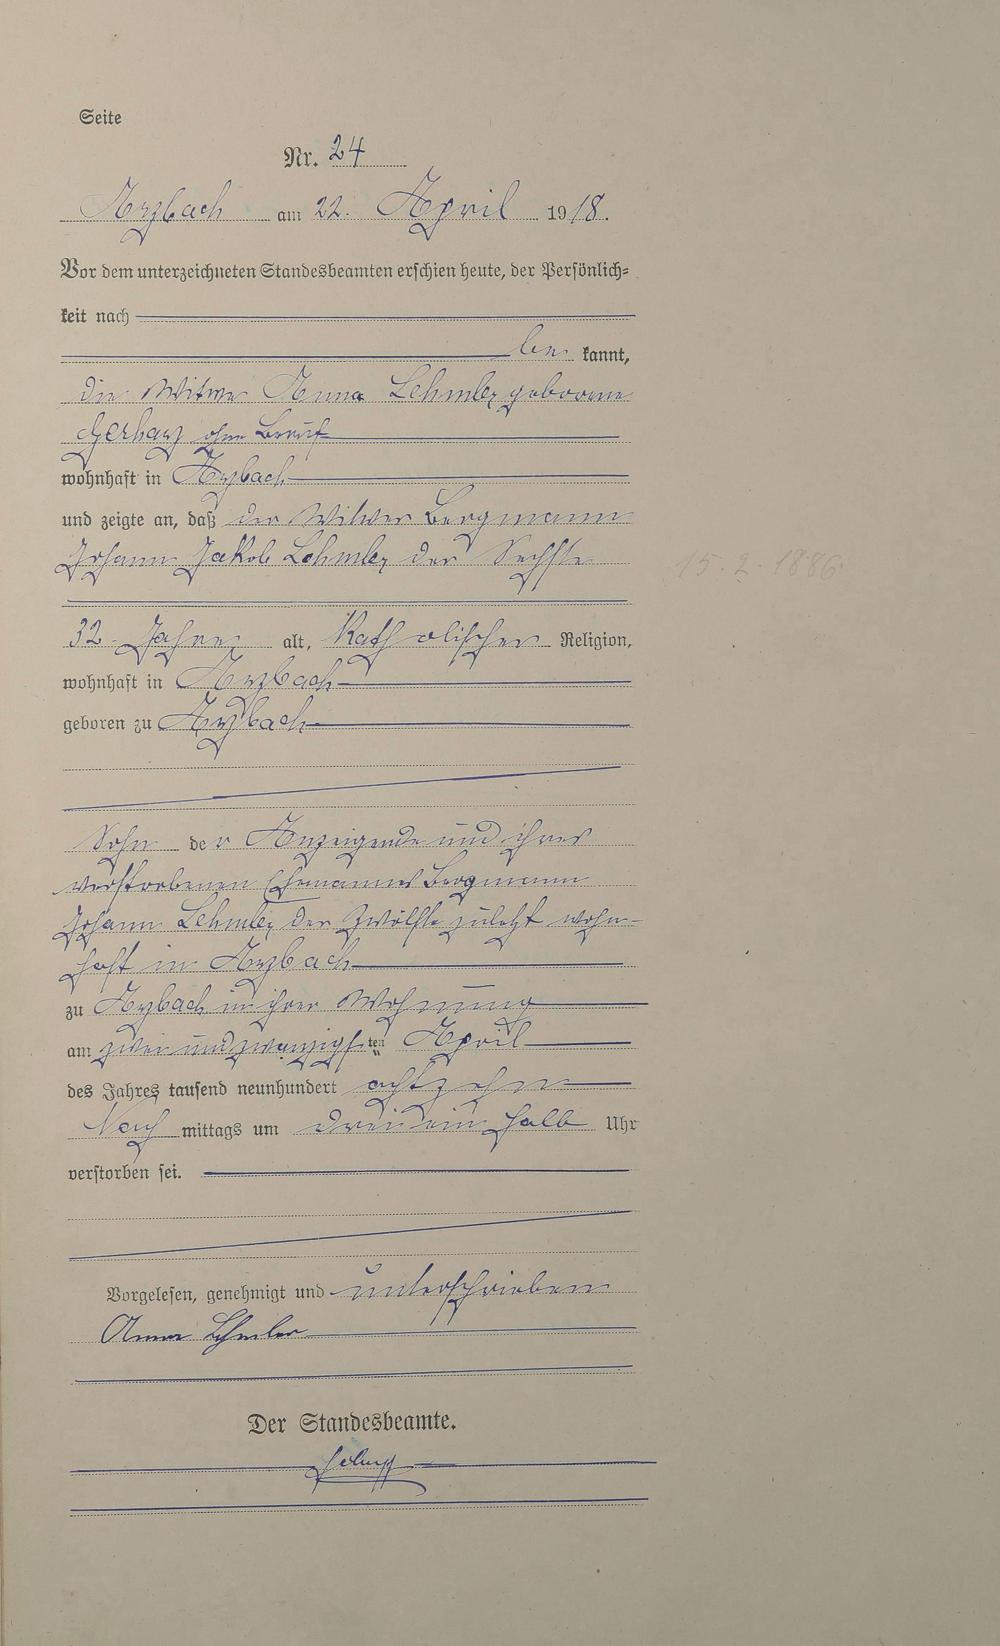 Seite
Nr. 24
Arzbach am 22. April 1918.
Vor dem unterzeichneten Standesbeamten erschien heute, der Persönlich-
keit nach
be kannt,
die Witwe Anna Lehmler geborene
Gerharz ohne Beruf
wohnhaft in Arzbach
und zeigte an, daß der Witwer Bergmann
Johann Jakob Lehmler der Sechste
15. 2. 1886.
32 Jahre alt, Katholischer Religion,
wohnhaft in Arzbach
geboren zu Arzbach
Sohn der Anzeigende und ihres
verstorbenen Ehemannes Bergmann
Johann Lehmler der Zwölfte zuletzt wohn-
haft in Arzbach
zu Arzbach in ihrer Wohnung
am zwei und zwanzigsten April
des Jahres tausend neunhundert achtzehn
Nach mittags um drei ein halb Uhr
verstorben sei.
Vorgelesen, genehmigt und unterschrieben
Anna Lehmler
Der Standesbeamte.